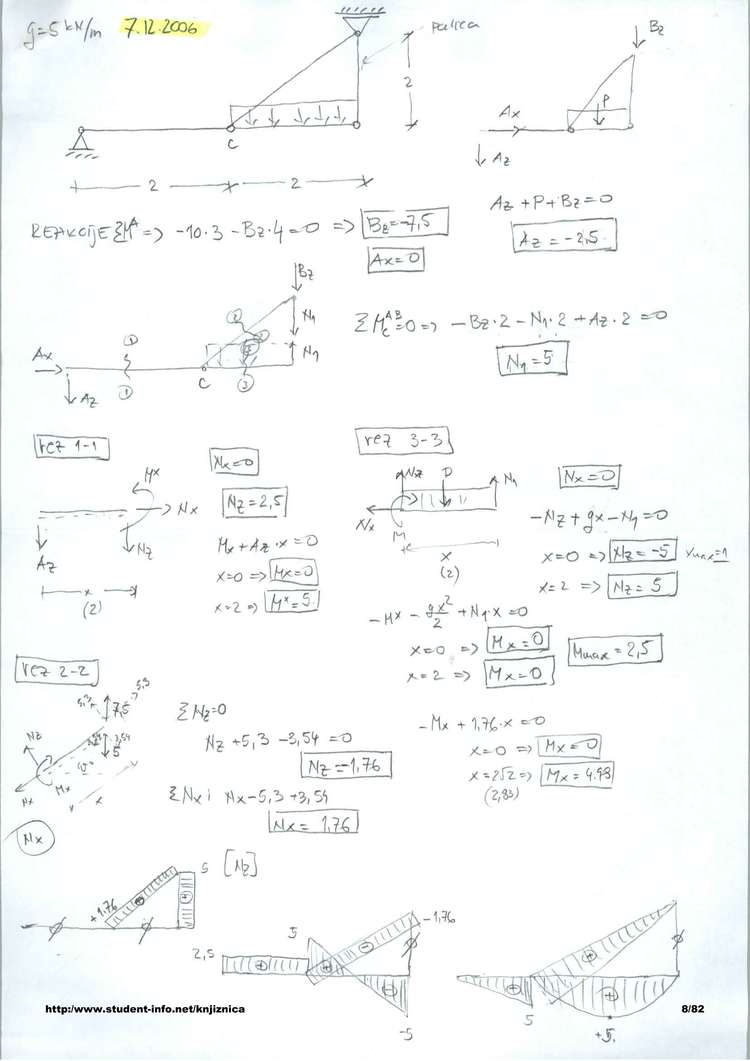 g=5 kN/m 7.12.2006
Palica
2
C
2 2
Bz
P
Ax
Az
Az + P + Bz = 0
Az = -2,5
REAKCIJE ΣMᴬ => -10·3 - Bz·4 = 0 => Bz = -7,5
Ax = 0
Bz
N1
N1
Ax
Az
C
1
1
2
2
3
3
ΣM_C^AB = 0 => -Bz·2 - N1·2 + Az·2 = 0
N1 = 5
rez 1-1
Mx
Nx
Nz
Az
x
(2)
Nx = 0
Nz = 2,5
Mx + Az·x = 0
x=0 => Mx = 0
x=2 => Mx = 5
rez 3-3
Nz P N1
Nx
M
x
(2)
Nx = 0
-Nz + gx - N1 = 0
x=0 => Nz = -5 xmax=1
x=2 => Nz = 5
-Mx - gx²/2 + N1·x = 0
x=0 => Mx = 0
x=2 => Mx = 0
Mmax = 2,5
rez 2-2
5,3
5,3
7,5
3,54
5
45°
Nz
Nx
Mx
x
ΣNz=0
Nz + 5,3 - 3,54 = 0
Nz = -1,76
ΣNx: Nx - 5,3 + 3,54
Nx = 1,76
-Mx + 1,76·x = 0
x=0 => Mx = 0
x=2√2 => Mx = 4.98
(2,83)
Nx
+1.76
5
[Nz]
2,5
5
-1,76
-5
5
+5,
http:/www.student-info.net/knjiznica
8/82